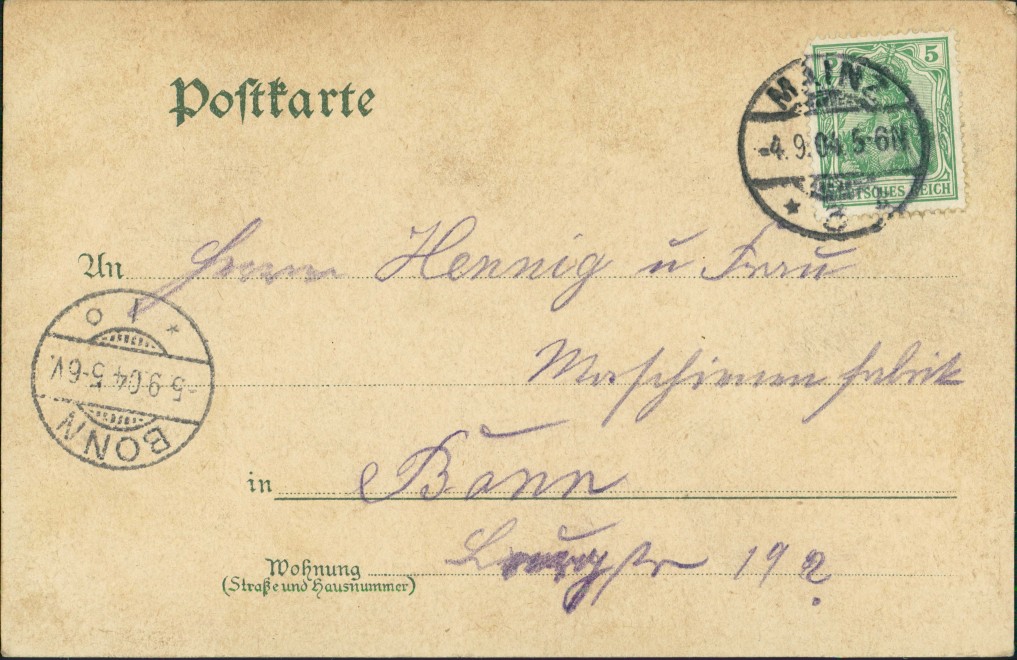 Postkarte
5
DEUTSCHES REICH
MAINZ
-4.9.04 5-6N
* 
An Herrn Hennig u Frau
Maschinenfabrik
* 1 o
-5.9.04 5-6V.
BONN
in Bonn
Wohnung
(Straße und Hausnummer)
19